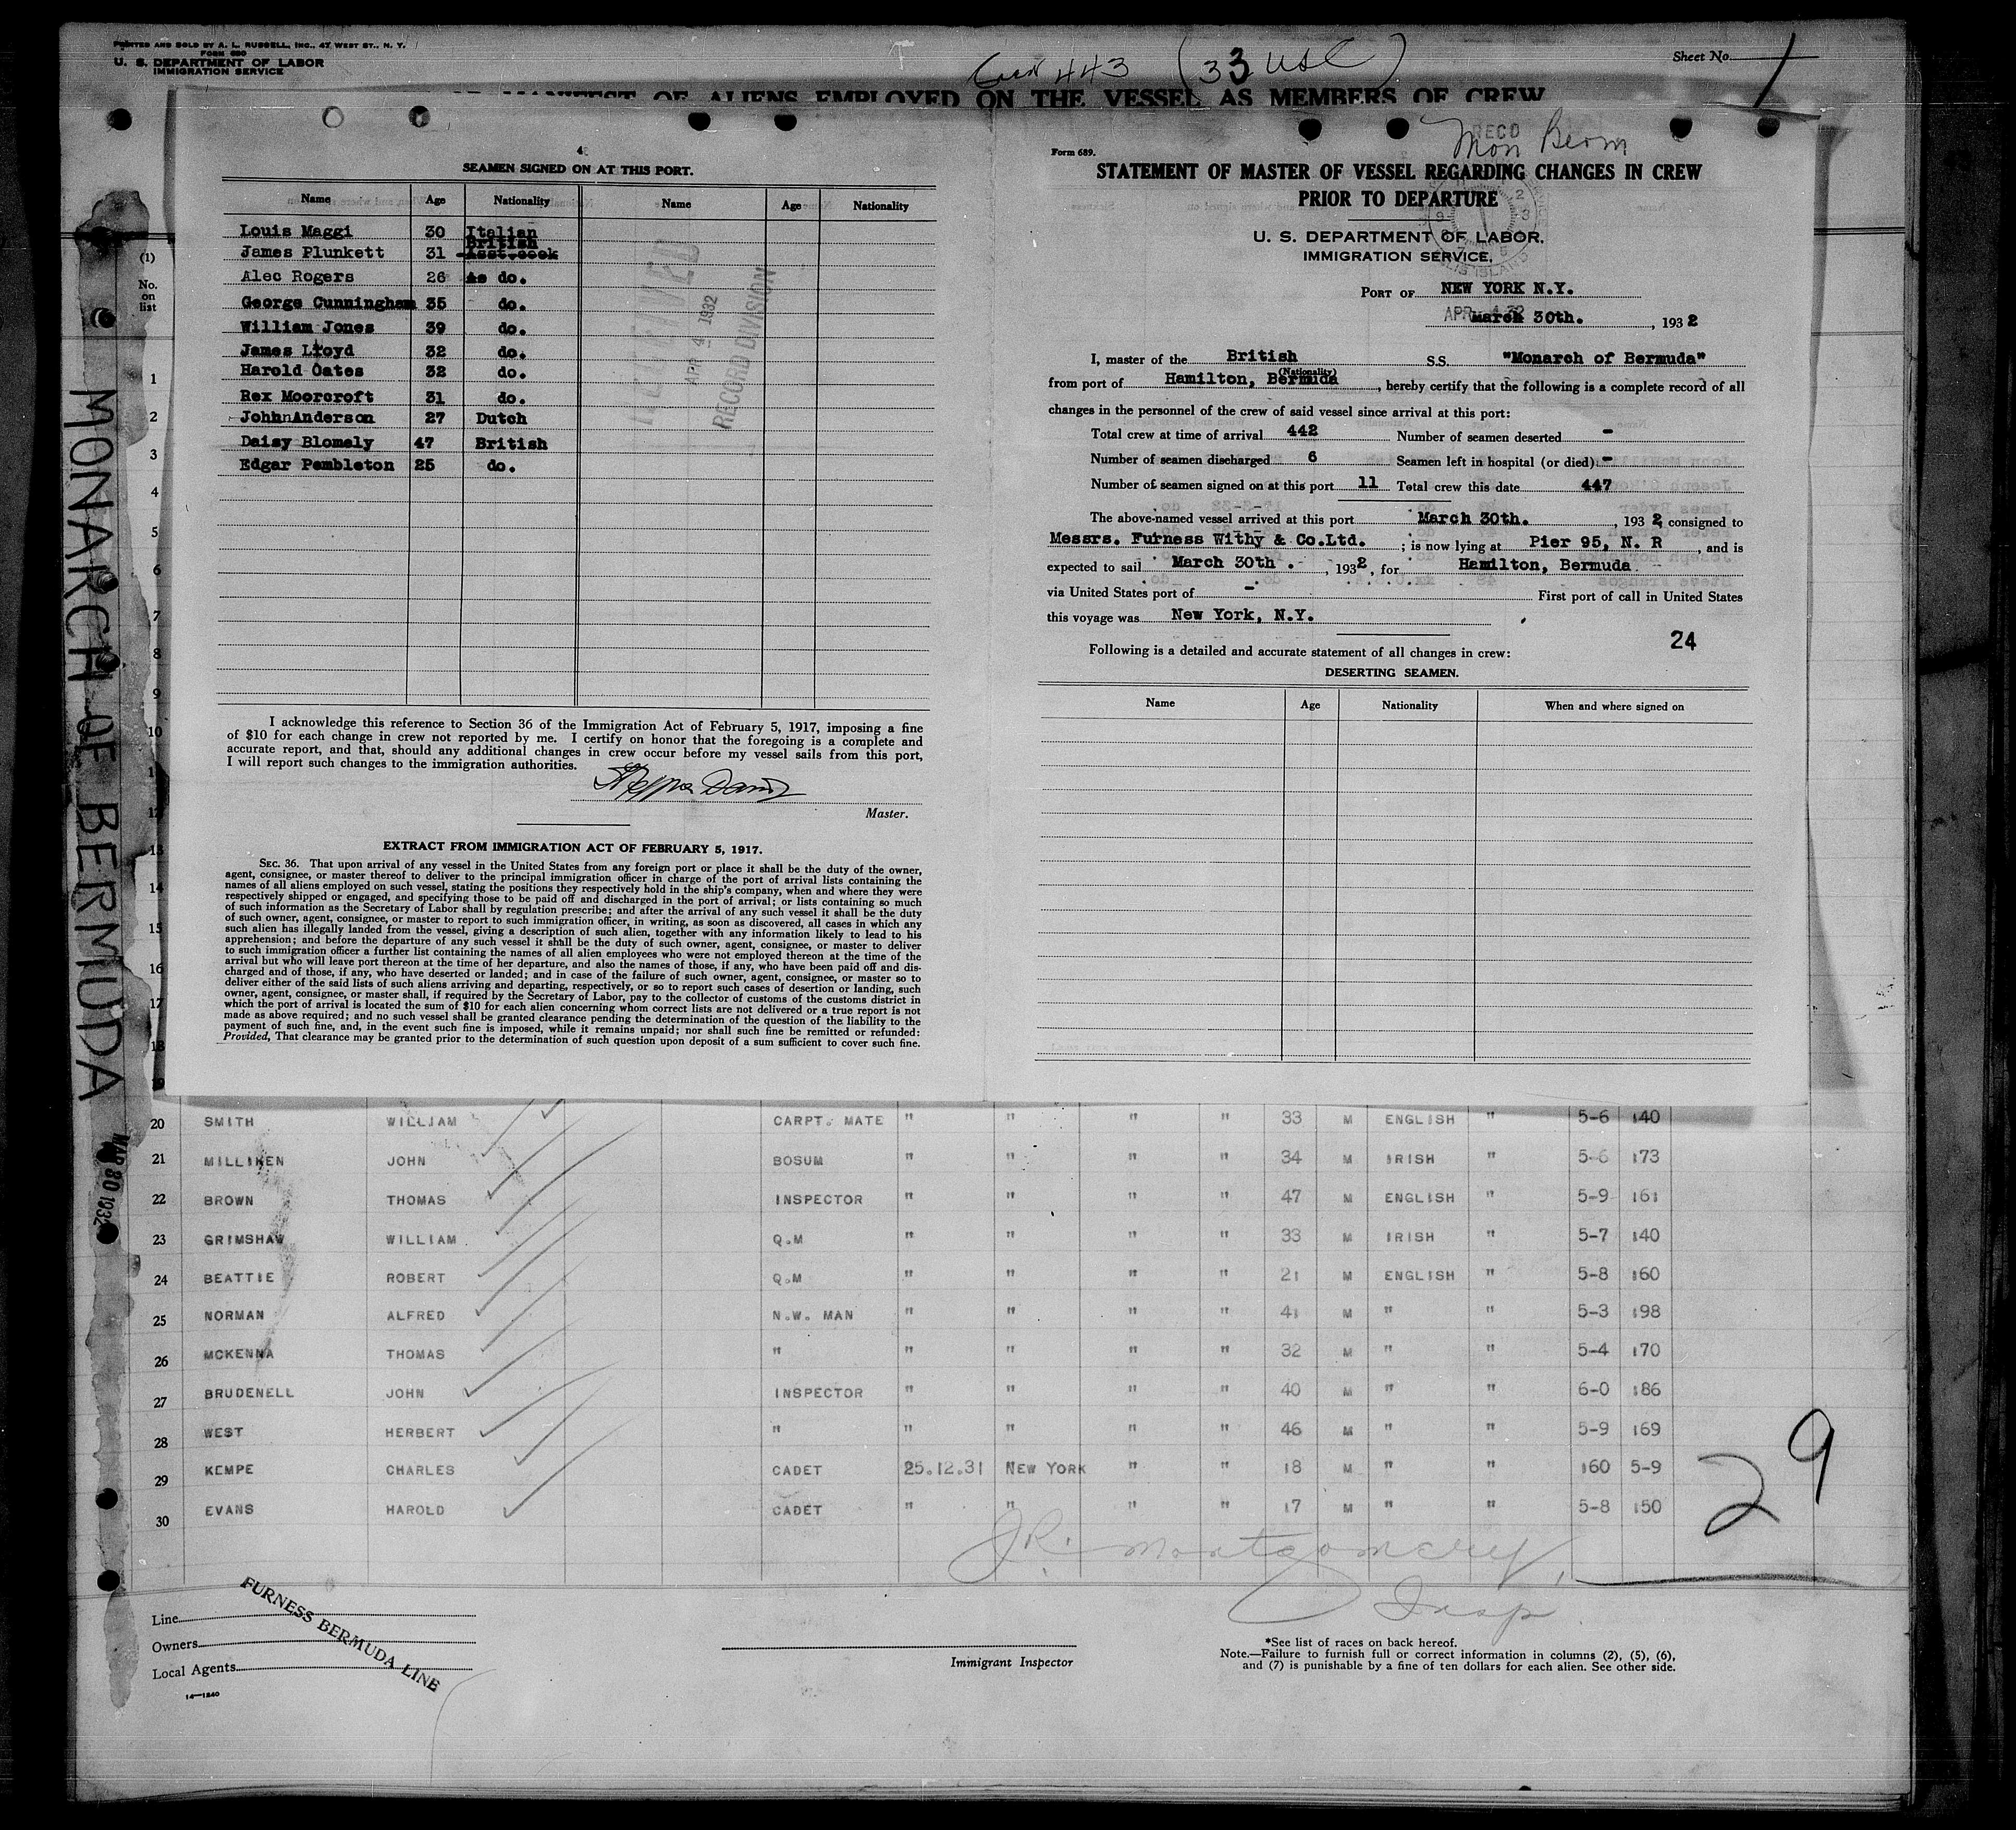 PRINTED AND SOLD BY A. L. RUSSELL, INC., 47 WEST ST., N. Y.
FORM 680
U. S. DEPARTMENT OF LABOR
IMMIGRATION SERVICE
443 (33 USC)
Sheet No. 1
MANIFEST OF ALIENS EMPLOYED ON THE VESSEL AS MEMBERS OF CREW
MONARCH OF BERMUDA
MAR 30 1932
(1)
No. on list
1
2
3
4
5
6
7
8
9
10
11
12
13
14
15
16
17
18
19
4
SEAMEN SIGNED ON AT THIS PORT.
Name Age Nationality Name Age Nationality
Louis Maggi 30 Italian
James Plunkett 31 British
Alec Rogers 26 do.
George Cunningham 35 do.
William Jones 39 do.
James Lloyd 32 do.
Harold Oates 32 do.
Rex Moorcroft 31 do.
JohhnAnderson 27 Dutch
Daisy Blomely 47 British
Edgar Pembleton 25 do.
RECEIVED
APR 4 1932
RECORD DIVISION
I acknowledge this reference to Section 36 of the Immigration Act of February 5, 1917, imposing a fine
of $10 for each change in crew not reported by me. I certify on honor that the foregoing is a complete and
accurate report, and that, should any additional changes in crew occur before my vessel sails from this port,
I will report such changes to the immigration authorities.
Master.
EXTRACT FROM IMMIGRATION ACT OF FEBRUARY 5, 1917.
SEC. 36. That upon arrival of any vessel in the United States from any foreign port or place it shall be the duty of the owner,
agent, consignee, or master thereof to deliver to the principal immigration officer in charge of the port of arrival lists containing the
names of all aliens employed on such vessel, stating the positions they respectively hold in the ship's company, when and where they were
respectively shipped or engaged, and specifying those to be paid off and discharged in the port of arrival; or lists containing so much
of such information as the Secretary of Labor shall by regulation prescribe; and after the arrival of any such vessel it shall be the duty
of such owner, agent, consignee, or master to report to such immigration officer, in writing, as soon as discovered, all cases in which any
such alien has illegally landed from the vessel, giving a description of such alien, together with any information likely to lead to his
apprehension; and before the departure of any such vessel it shall be the duty of such owner, agent, consignee, or master to deliver
to such immigration officer a further list containing the names of all alien employees who were not employed thereon at the time of the
arrival but who will leave port thereon at the time of her departure, and also the names of those, if any, who have been paid off and dis-
charged and of those, if any, who have deserted or landed; and in case of the failure of such owner, agent, consignee, or master so to
deliver either of the said lists of such aliens arriving and departing, respectively, or so to report such cases of desertion or landing, such
owner, agent, consignee, or master shall, if required by the Secretary of Labor, pay to the collector of customs of the customs district in
which the port of arrival is located the sum of $10 for each alien concerning whom correct lists are not delivered or a true report is not
made as above required; and no such vessel shall be granted clearance pending the determination of the question of the liability to the
payment of such fine, and, in the event such fine is imposed, while it remains unpaid; nor shall such fine be remitted or refunded:
Provided, That clearance may be granted prior to the determination of such question upon deposit of a sum sufficient to cover such fine.
Form 689.
RECD
Mon Berm
STATEMENT OF MASTER OF VESSEL REGARDING CHANGES IN CREW
PRIOR TO DEPARTURE
U. S. DEPARTMENT OF LABOR.
IMMIGRATION SERVICE.
PORT OF NEW YORK N.Y.
March 30th. , 1932
I, master of the British S.S. "Monarch of Bermuda"
(Nationality)
from port of Hamilton, Bermuda , hereby certify that the following is a complete record of all
changes in the personnel of the crew of said vessel since arrival at this port:
Total crew at time of arrival 442 Number of seamen deserted -
Number of seamen discharged 6 Seamen left in hospital (or died) -
Number of seamen signed on at this port 11 Total crew this date 447
The above-named vessel arrived at this port March 30th. , 1932, consigned to
Messrs. Furness Withy & Co.Ltd. ; is now lying at Pier 95, N. R , and is
expected to sail March 30th . , 1932, for Hamilton, Bermuda
via United States port of - First port of call in United States
this voyage was New York, N.Y.
24
Following is a detailed and accurate statement of all changes in crew:
DESERTING SEAMEN.
Name Age Nationality When and where signed on
20 SMITH WILLIAM CARPT. MATE " " " " 33 M ENGLISH " 5-6 140
21 MILLIKEN JOHN BOSUM " " " " 34 M IRISH " 5-6 173
22 BROWN THOMAS INSPECTOR " " " " 47 M ENGLISH " 5-9 161
23 GRIMSHAW WILLIAM Q.M " " " " 33 M IRISH " 5-7 140
24 BEATTIE ROBERT Q.M " " " " 21 M ENGLISH " 5-8 160
25 NORMAN ALFRED N.W. MAN " " " " 41 M " " 5-3 198
26 MCKENNA THOMAS " " " " " 32 M " " 5-4 170
27 BRUDENELL JOHN INSPECTOR " " " " 40 M " " 6-0 186
28 WEST HERBERT " " " " " 46 M " " 5-9 169
29 KEMPE CHARLES CADET 25.12.31 NEW YORK " " 18 M " " 160 5-9
30 EVANS HAROLD CADET " " " " 17 M " " 5-8 150
29
J.R. Montgomery,
Insp
Line
Owners
Local Agents
FURNESS BERMUDA LINE
14—1240
Immigrant Inspector
*See list of races on back hereof.
Note.—Failure to furnish full or correct information in columns (2), (5), (6),
and (7) is punishable by a fine of ten dollars for each alien. See other side.